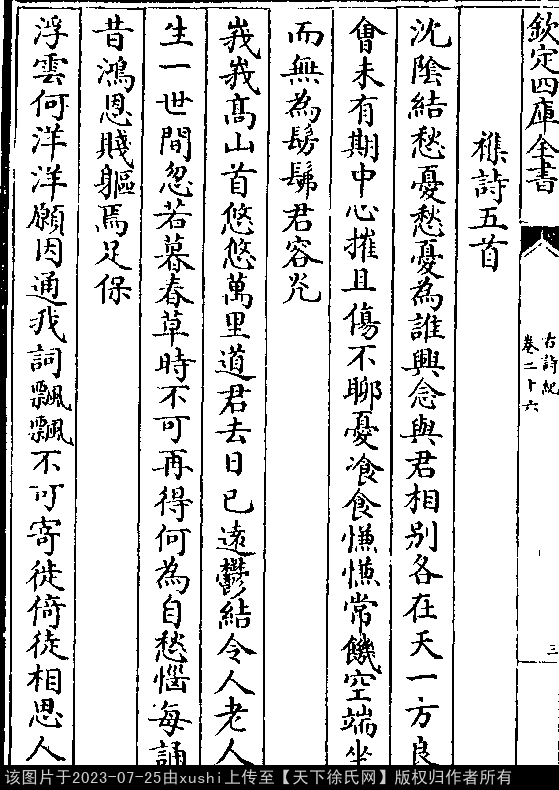 欽定四庫全書
古詩紀
卷二十六
三
襍詩五首
沈陰結愁憂愁憂為誰興念與君相别各在天一方良
會未有期中心摧且傷不聊憂湌食慊慊常饑空端坐
而無為髣髴君容光
峩峩髙山首悠悠萬里道君去日已遠鬱結令人老人
生一世間忽若暮春草時不可再得何為自愁惱每誦
昔鴻恩賤軀焉足保
浮雲何洋洋願因通我詞飄飄不可寄徙倚徒相思人
该图片于2023-07-25由xushi上传至【天下徐氏网】版权归作者所有